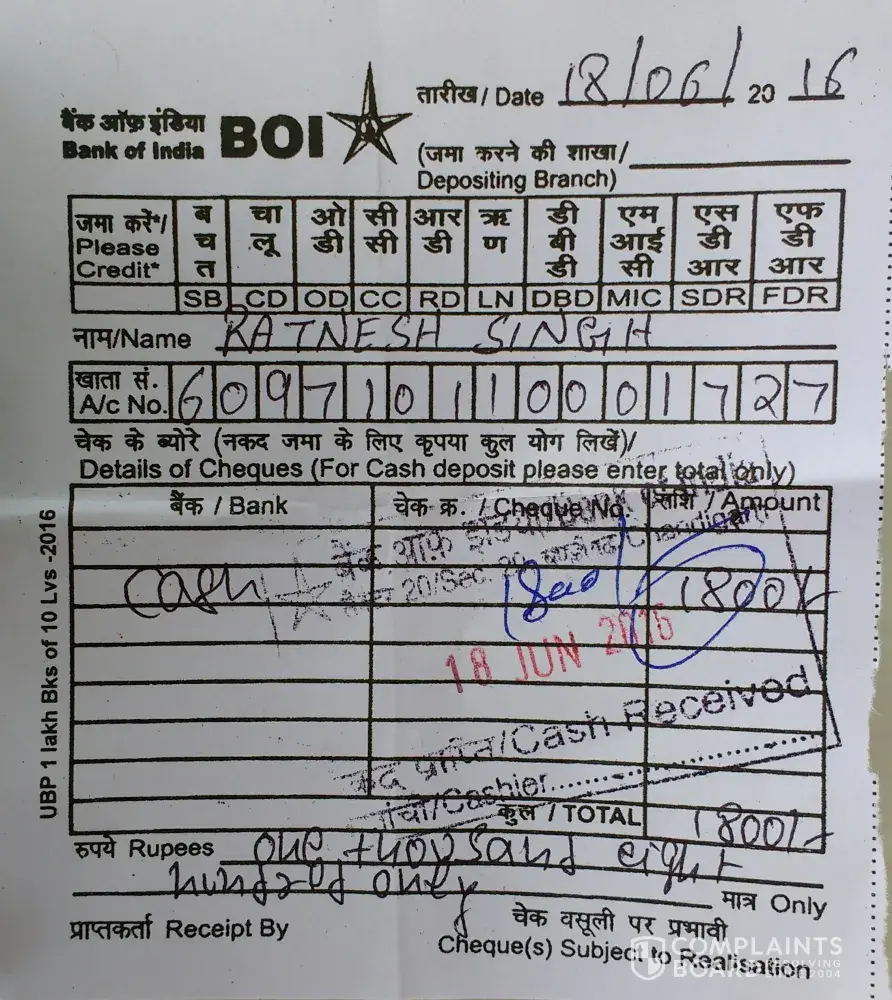 बैंक ऑफ़ इंडिया
Bank of India BOI
तारीख / Date 18/06/ 20 16
(जमा करने की शाखा/
Depositing Branch)
जमा करें*/ Please Credit* बचत चालू ओडी सीसी आरडी ऋण डीबीडी एमआईसी एसडीआर एफडीआर
SB CD OD CC RD LN DBD MIC SDR FDR
नाम/Name RATNESH SINGH
खाता सं.
A/c No. 609710110001727
चेक के ब्योरे (नकद जमा के लिए कृपया कुल योग लिखें)/
Details of Cheques (For Cash deposit please enter total only)
बैंक / Bank चेक क्र. / Cheque No. राशि / Amount
बैंक ऑफ़ इंडिया
20/Sec. 20, Chandigarh
Cash 1800 1800/-
18 JUN 2016
प्राप्ति/Cash Received
/Cashier
कुल / TOTAL 1800/-
रुपये Rupees one thousand eight
hundred only मात्र Only
प्राप्तकर्ता Receipt By
चेक वसूली पर प्रभावी
Cheque(s) Subject to Realisation
UBP 1 lakh Bks of 10 Lvs -2016
COMPLAINTS
BOARD